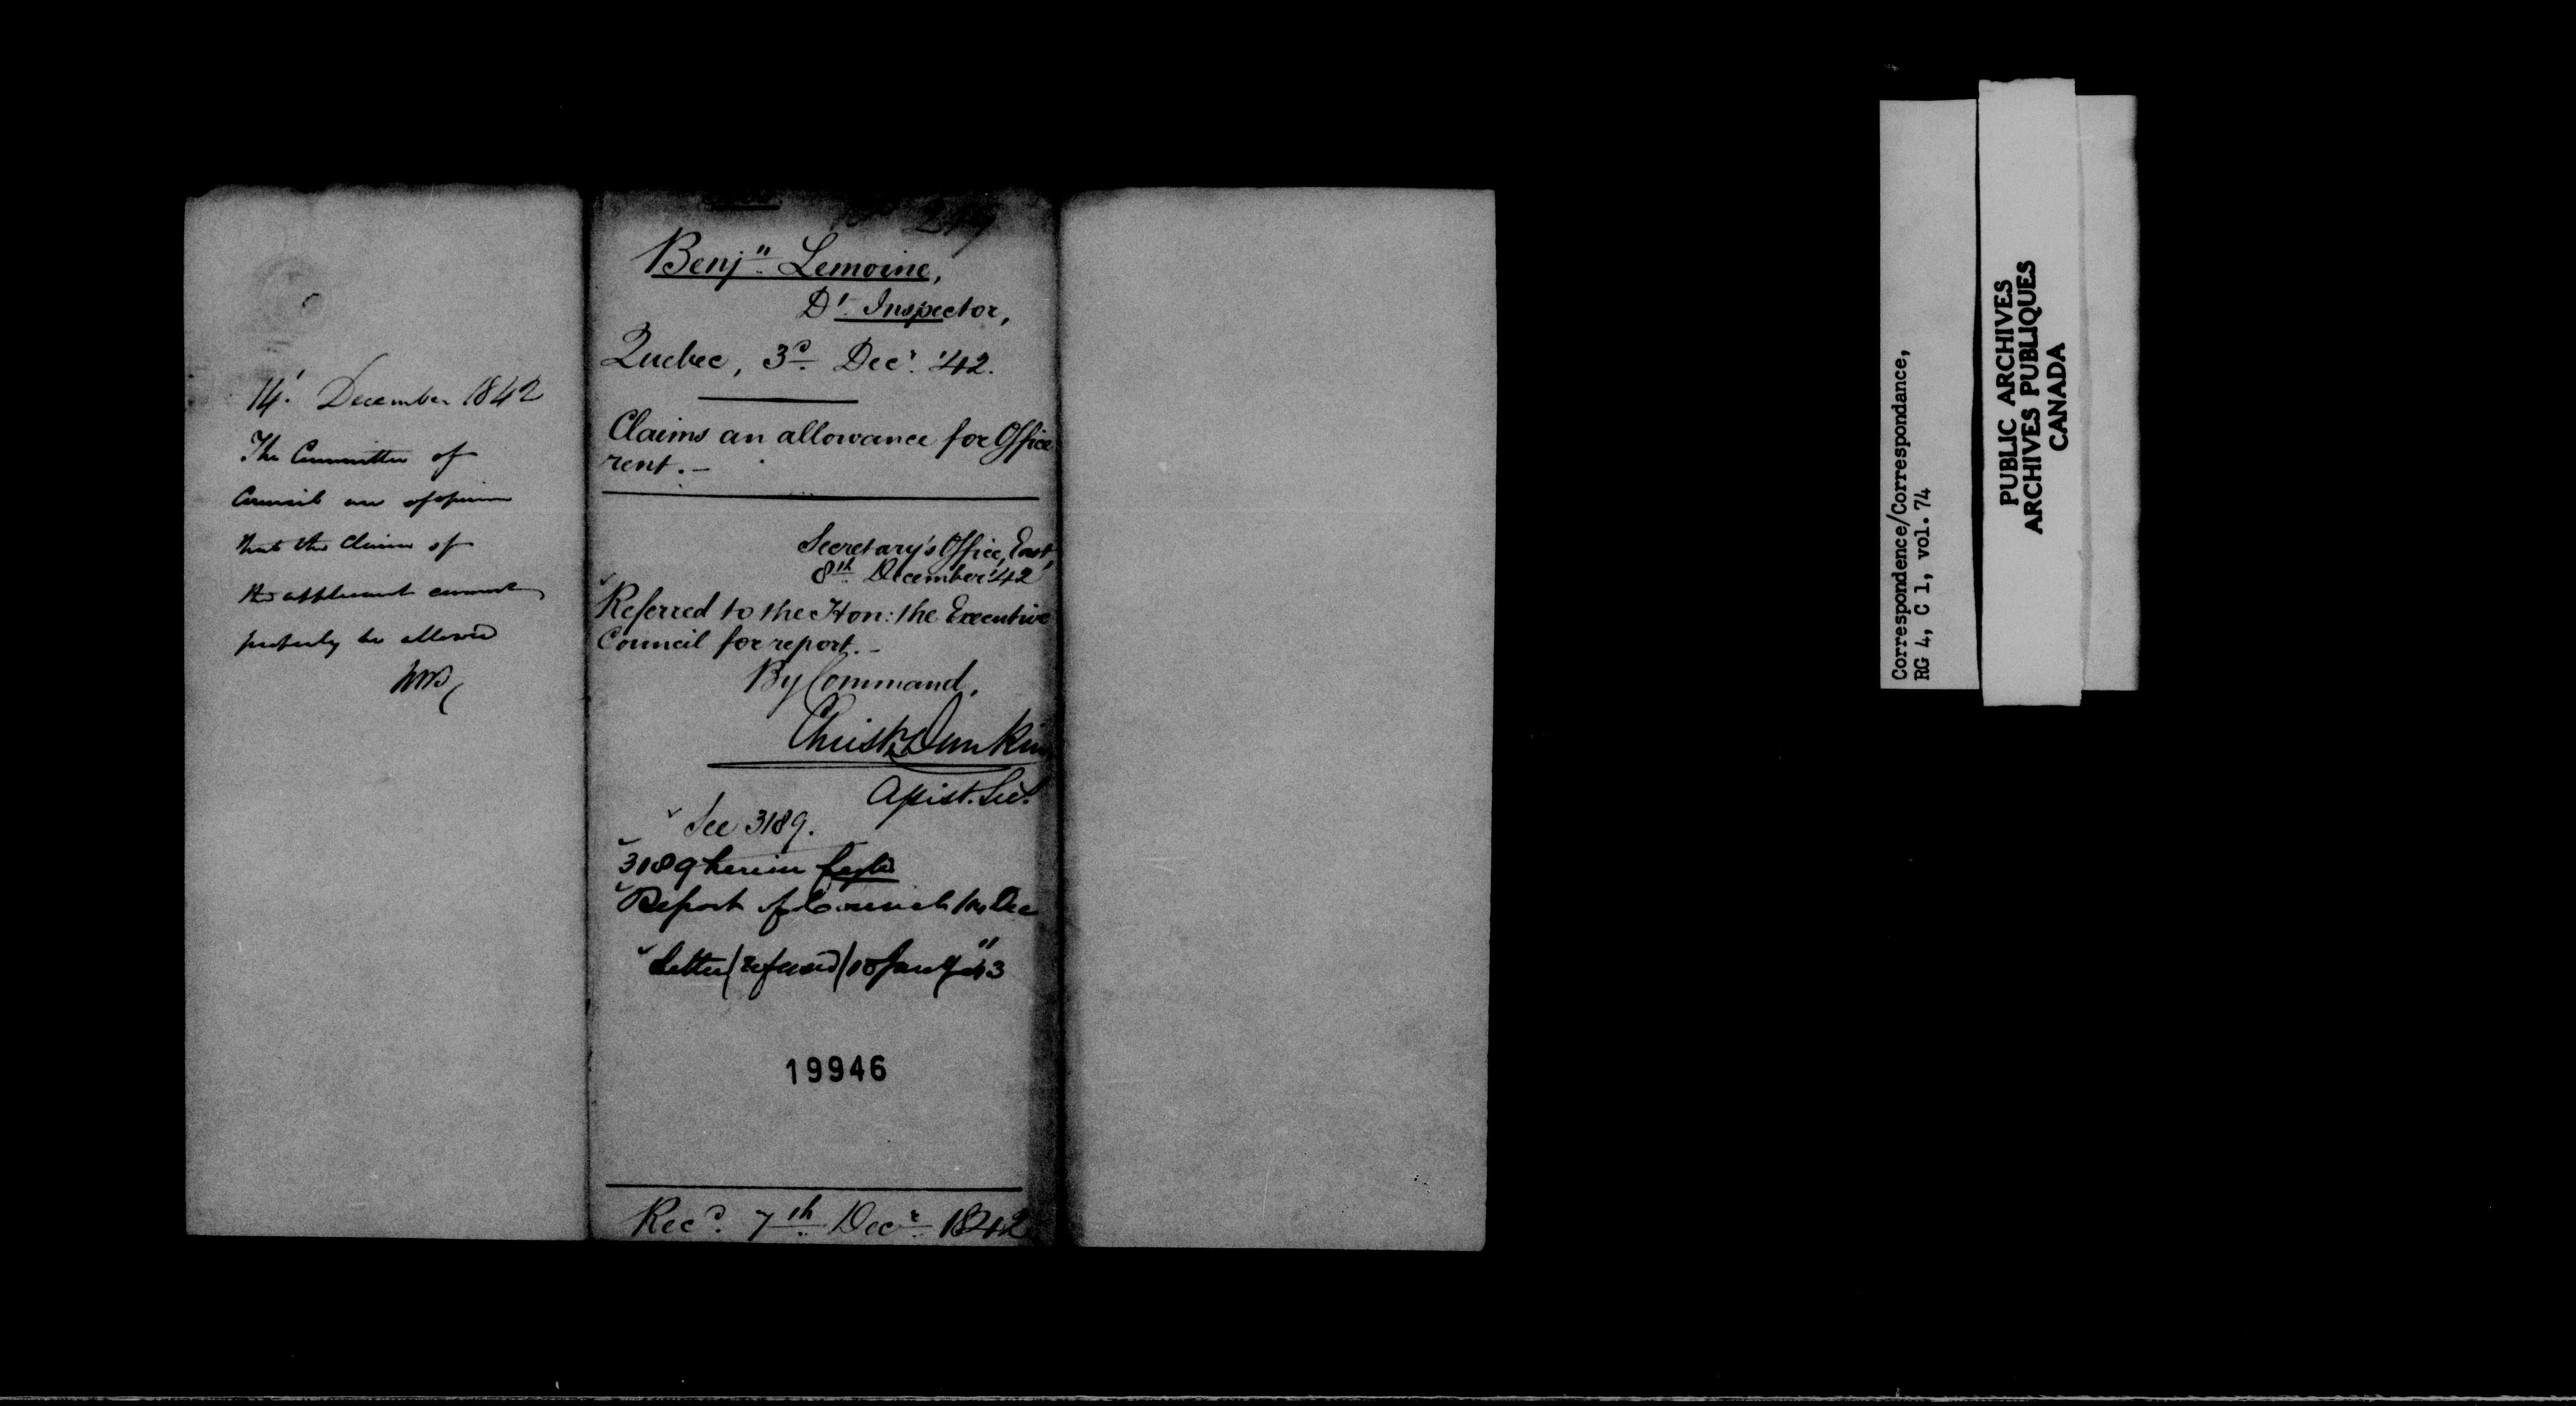 14' December 1842
The Committee of
Council are of opinion
that the Claim of
the applicant cannot
properly be allowed
Benjn Lemoine,
Dt Inspector,
Quebec, 3d Decr '42.
Claims an allowance for Office
rent.-
Secretary's Office, East
8th December '42
Referred to the Hon: the Executive
Council for report.-
By Command,
Christr Dunkin
Assist. Secy.
See 3189.
3189 herein
Report of Council 14 Dec
Letter (refused) 10 Jany 43
19946
Recd. 7th Decr 1842
Correspondence/Correspondance,
RG 4, C 1, vol. 74
PUBLIC ARCHIVES
ARCHIVES PUBLIQUES
CANADA